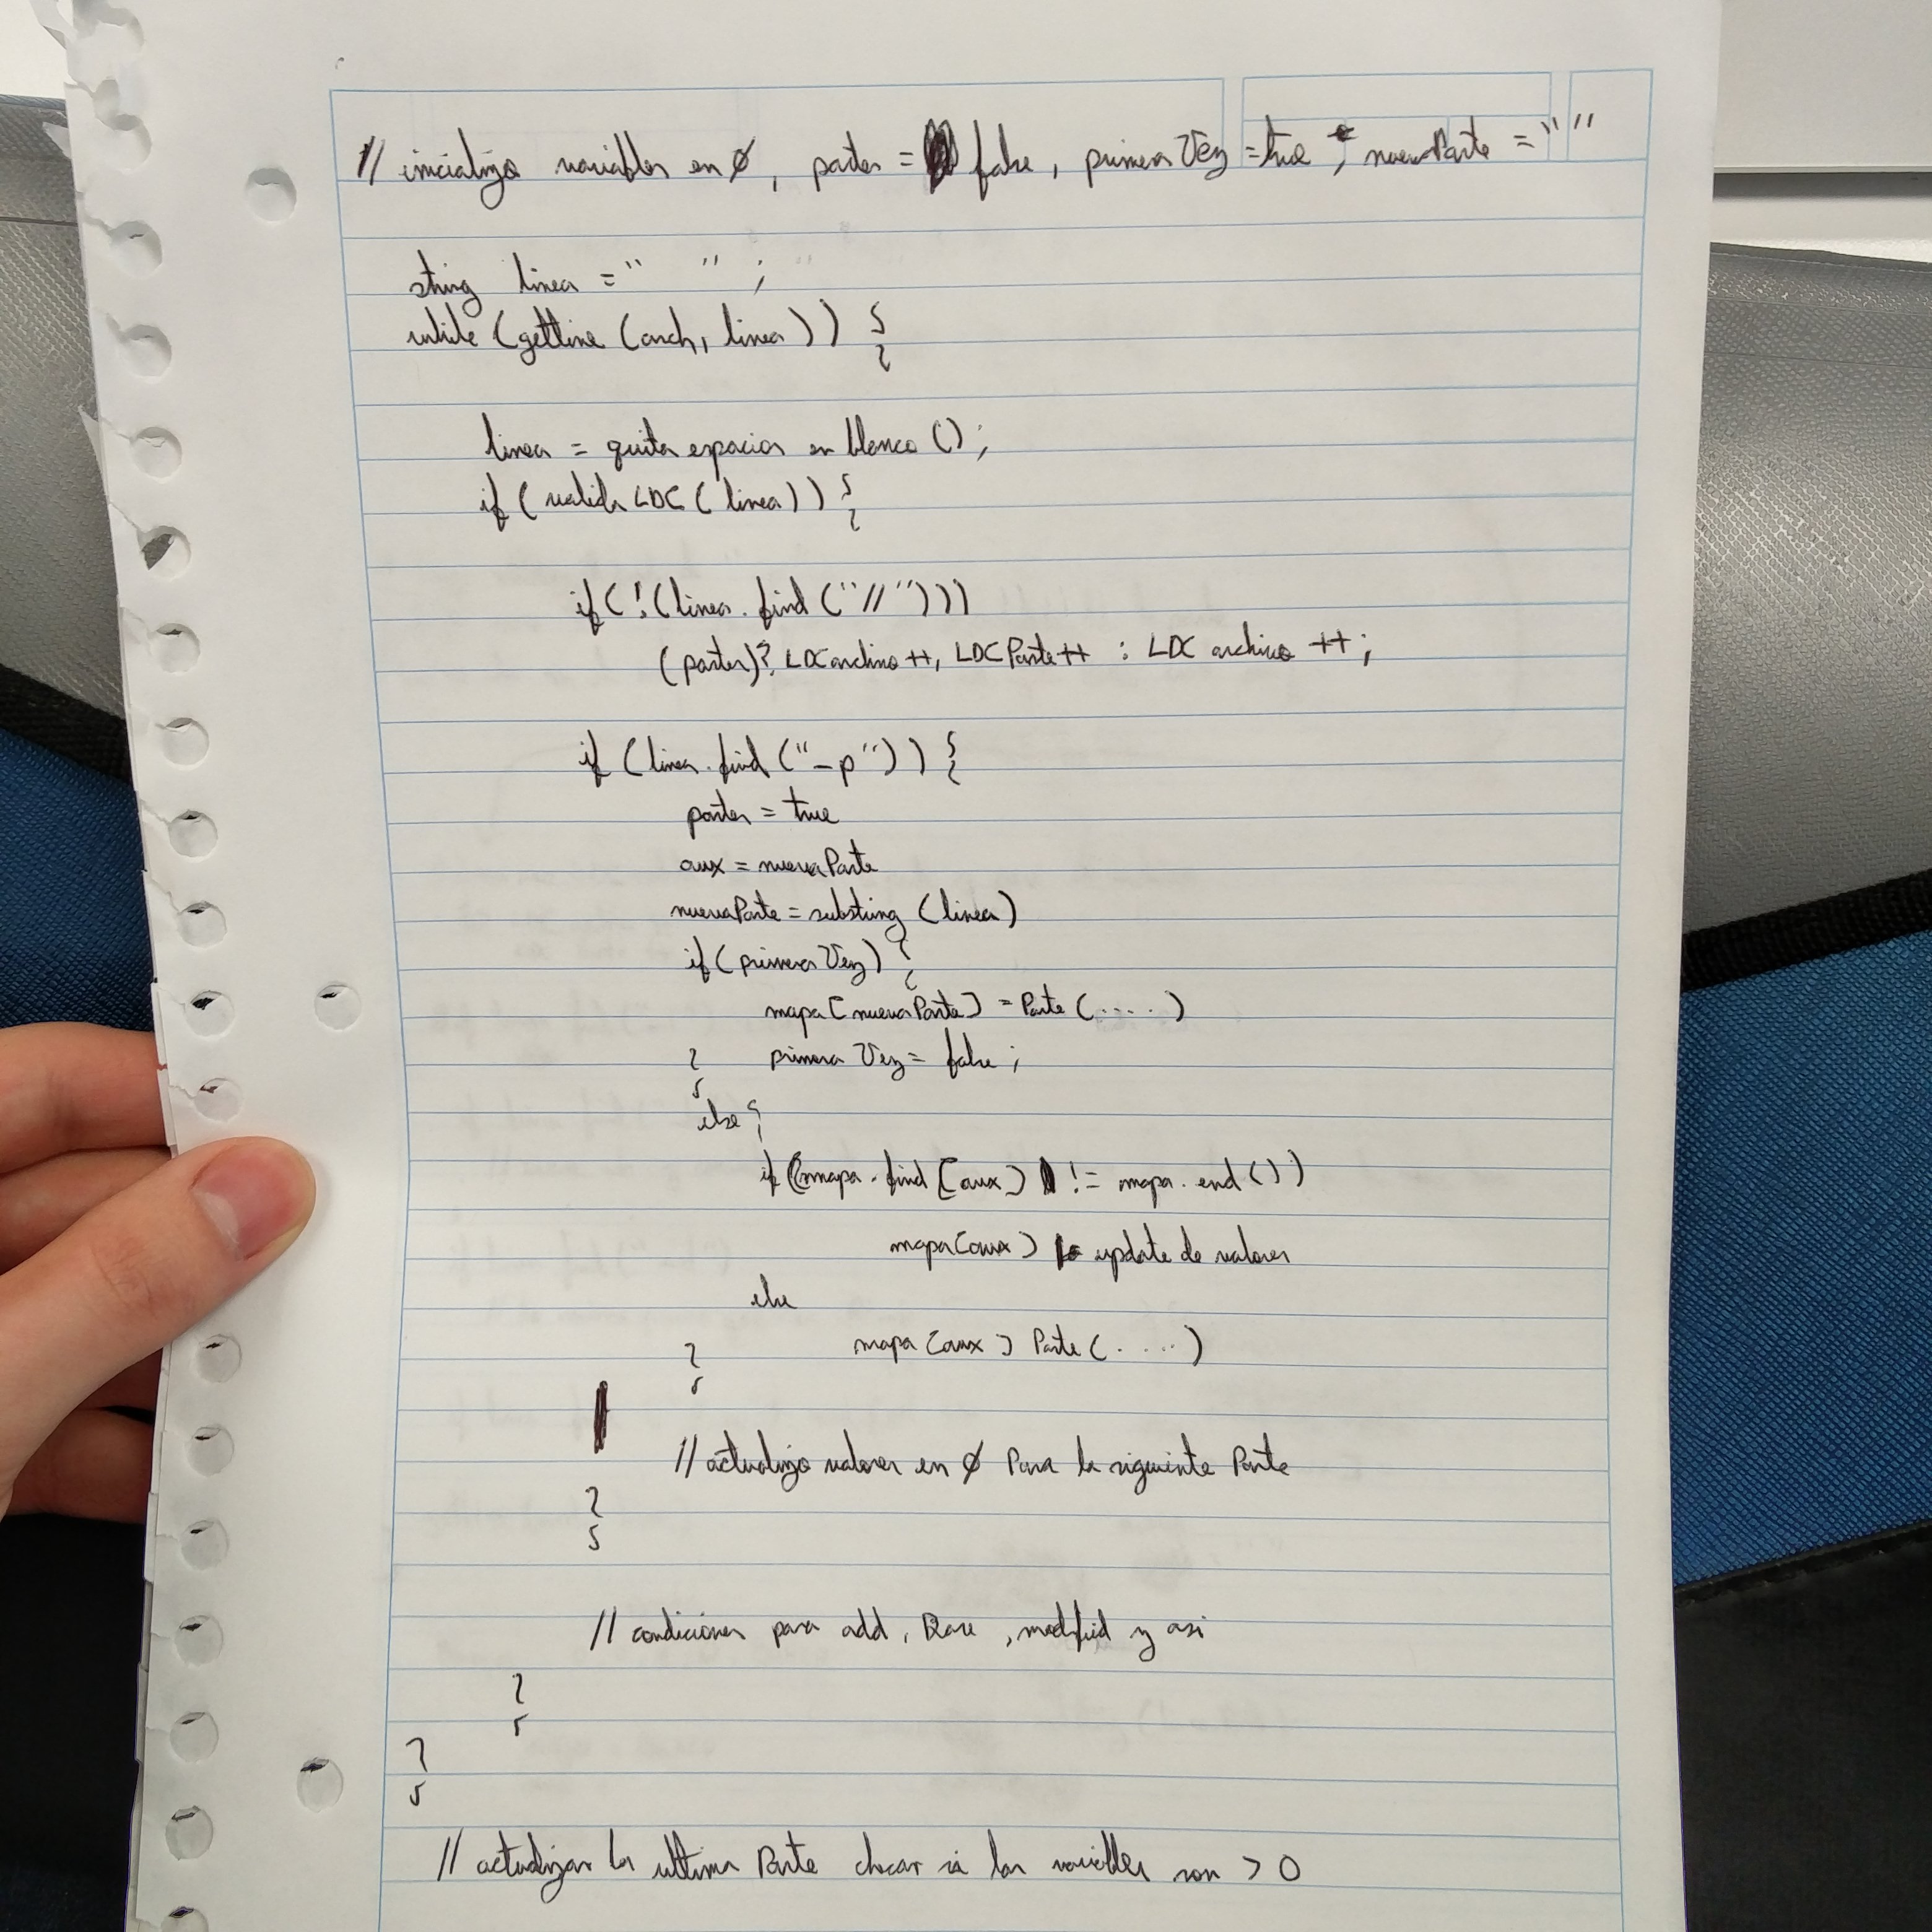 // inicializo variables en Ø, partes = false, primera Vez = true, nuevaParte = " "
string linea = " " ;
while (getline (arch, linea)) {
linea = quita espacios en blanco ();
if ( valida LDC ( linea)) {
if ( ! (linea. find ("//")))
(partes)? LDC archivo ++, LDC Parte ++ : LDC archivo ++;
if (linea. find ("-p")) {
partes = true
aux = nueva Parte
nuevaParte = substring (linea)
if (primera Vez) {
mapa [nueva Parte] = Parte (.....)
} primera Vez = false ;
else {
if (mapa. find [aux] != mapa. end ())
mapa [aux] update de valores
else
} mapa [aux] Parte (.....)
// actualizo valores en Ø Para la siguiente Parte
}
// condiciones para add, Base, modified y asi
}
}
// actualizar la ultima Parte checar si las variables son > 0